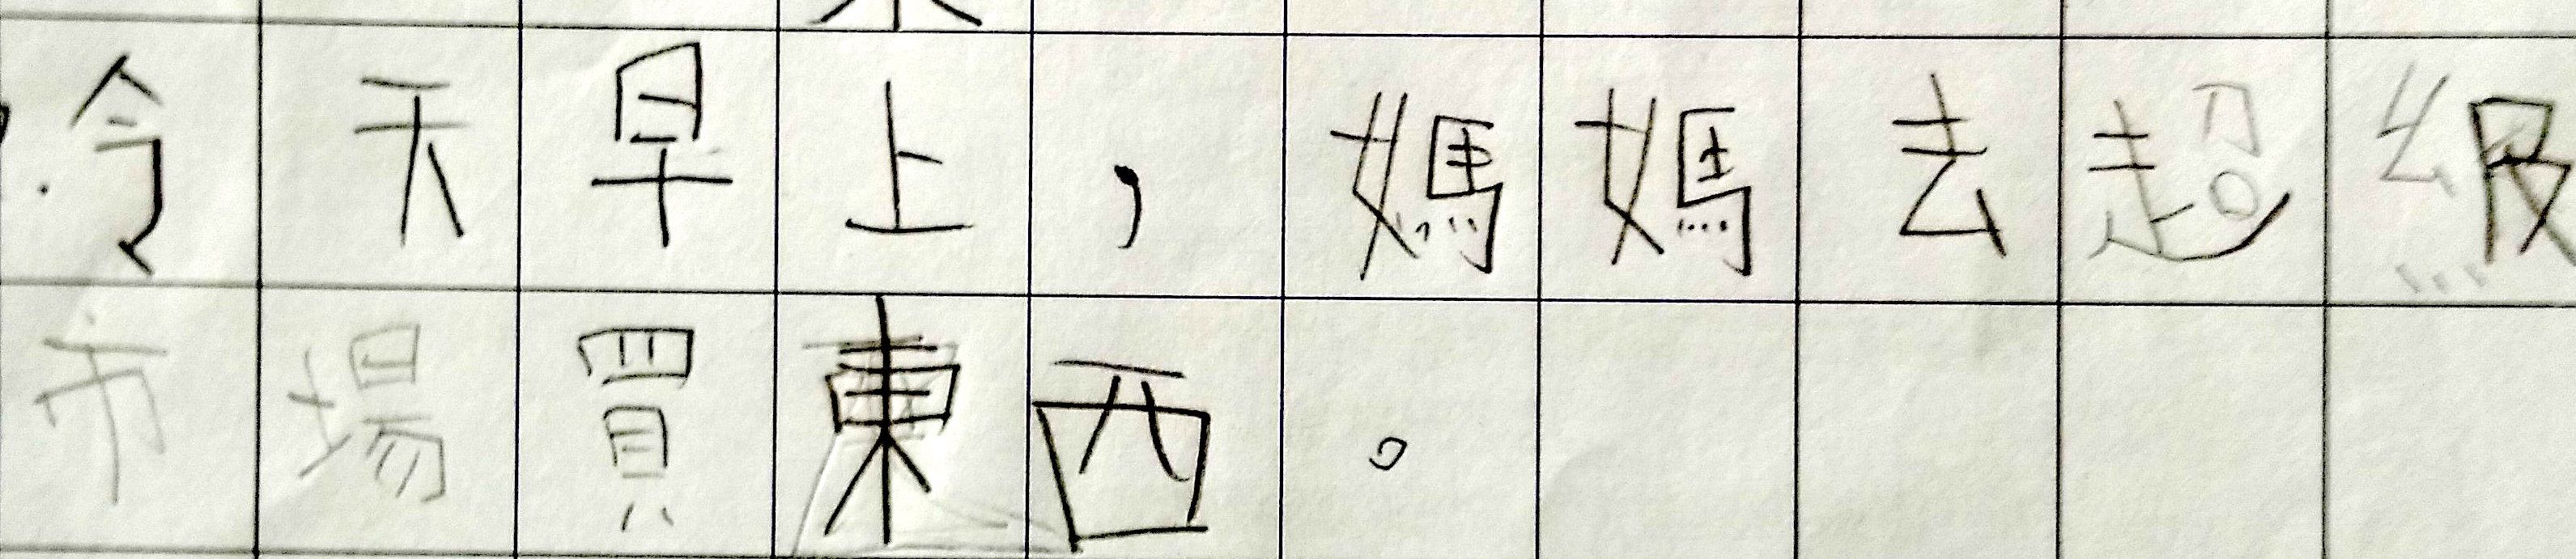 今天早上，媽媽去超級
市場買東西。